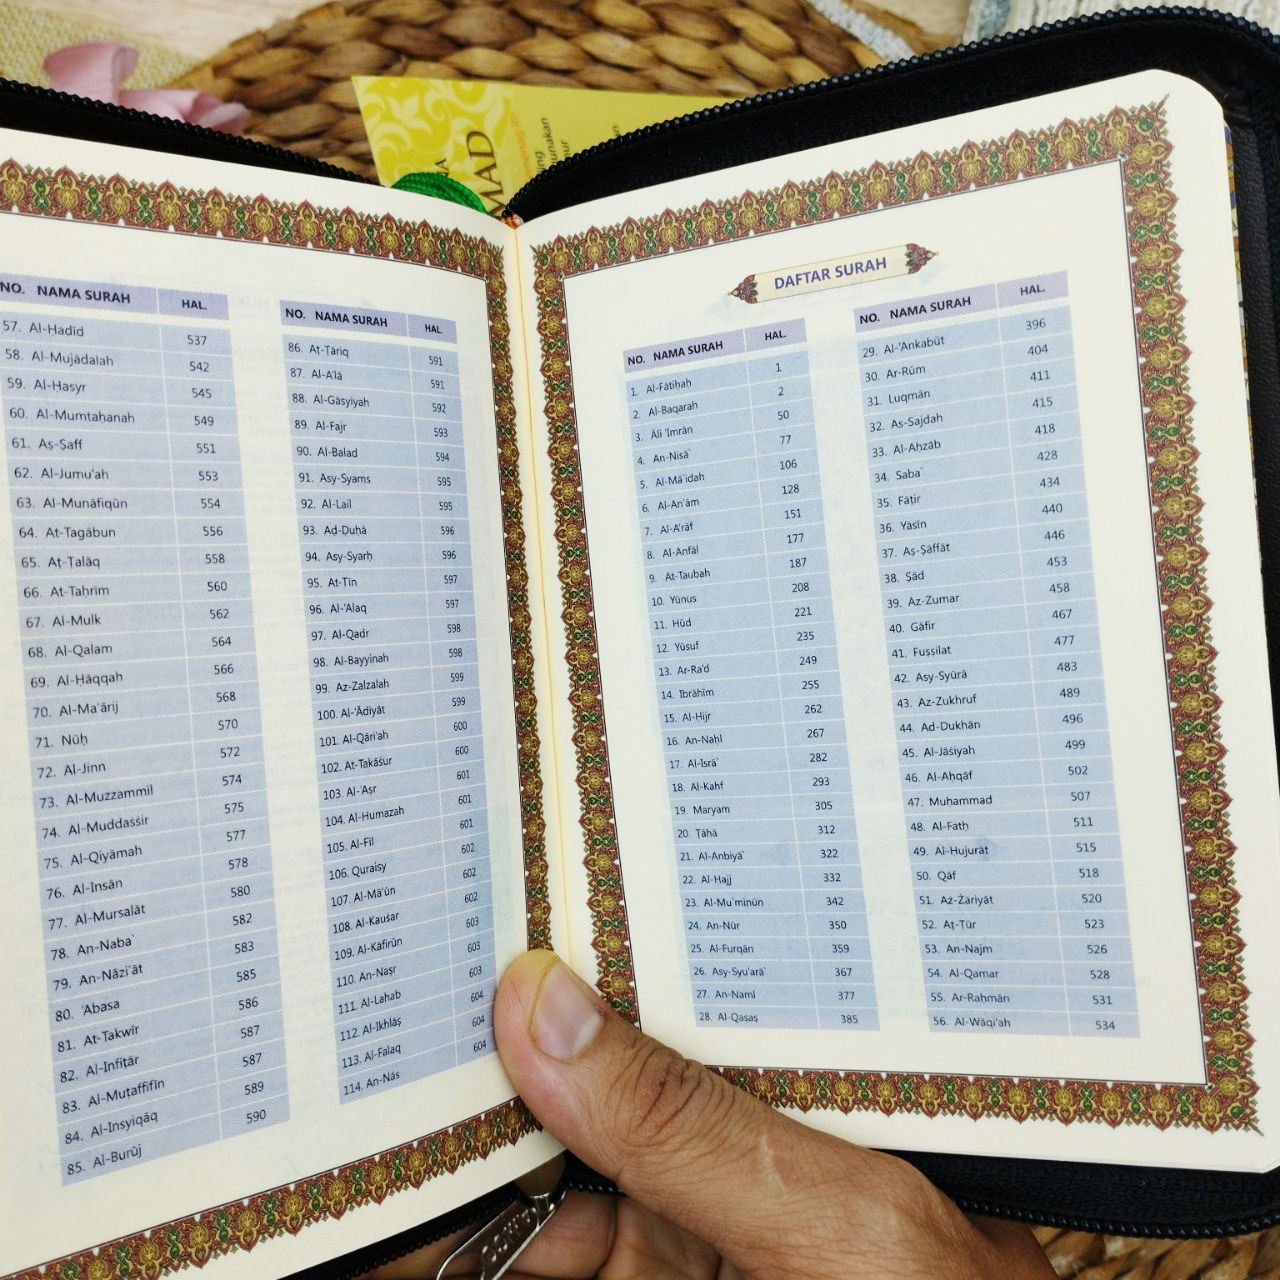 MAD
DAFTAR SURAH
NO. NAMA SURAH HAL.
1. Al-Fātiḥah 1
2. Al-Baqarah 2
3. Āli 'Imrān 50
4. An-Nisā` 77
5. Al-Mā`idah 106
6. Al-An'ām 128
7. Al-A'rāf 151
8. Al-Anfāl 177
9. At-Taubah 187
10. Yūnus 208
11. Hūd 221
12. Yūsuf 235
13. Ar-Ra'd 249
14. Ibrāhīm 255
15. Al-Ḥijr 262
16. An-Naḥl 267
17. Al-Isrā` 282
18. Al-Kahf 293
19. Maryam 305
20. Ṭāhā 312
21. Al-Anbiyā` 322
22. Al-Hajj 332
23. Al-Mu`minūn 342
24. An-Nūr 350
25. Al-Furqān 359
26. Asy-Syu'arā` 367
27. An-Naml 377
28. Al-Qaṣaṣ 385
NO. NAMA SURAH HAL.
29. Al-'Ankabūt 396
30. Ar-Rūm 404
31. Luqmān 411
32. As-Sajdah 415
33. Al-Aḥzāb 418
34. Saba` 428
35. Fāṭir 434
36. Yāsīn 440
37. Aṣ-Ṣāffāt 446
38. Ṣād 453
39. Az-Zumar 458
40. Gāfir 467
41. Fuṣṣilat 477
42. Asy-Syūrā 483
43. Az-Zukhruf 489
44. Ad-Dukhān 496
45. Al-Jāṡiyah 499
46. Al-Aḥqāf 502
47. Muḥammad 507
48. Al-Fatḥ 511
49. Al-Hujurāt 515
50. Qāf 518
51. Aż-Żāriyāt 520
52. Aṭ-Ṭūr 523
53. An-Najm 526
54. Al-Qamar 528
55. Ar-Raḥmān 531
56. Al-Wāqi'ah 534
NO. NAMA SURAH HAL.
57. Al-Ḥadīd 537
58. Al-Mujādalah 542
59. Al-Ḥasyr 545
60. Al-Mumtaḥanah 549
61. Aṣ-Ṣaff 551
62. Al-Jumu'ah 553
63. Al-Munāfiqūn 554
64. At-Tagābun 556
65. Aṭ-Ṭalāq 558
66. At-Taḥrīm 560
67. Al-Mulk 562
68. Al-Qalam 564
69. Al-Ḥāqqah 566
70. Al-Ma'ārij 568
71. Nūḥ 570
72. Al-Jinn 572
73. Al-Muzzammil 574
74. Al-Muddaṡṡir 575
75. Al-Qiyāmah 577
76. Al-Insān 578
77. Al-Mursalāt 580
78. An-Naba` 582
79. An-Nāzi'āt 583
80. 'Abasa 585
81. At-Takwīr 586
82. Al-Infiṭār 587
83. Al-Muṭaffifīn 587
84. Al-Insyiqāq 589
85. Al-Burūj 590
NO. NAMA SURAH HAL.
86. Aṭ-Ṭāriq 591
87. Al-A'lā 591
88. Al-Gāsyiyah 592
89. Al-Fajr 593
90. Al-Balad 594
91. Asy-Syams 595
92. Al-Lail 595
93. Aḍ-Ḍuḥā 596
94. Asy-Syarḥ 596
95. At-Tīn 597
96. Al-'Alaq 597
97. Al-Qadr 598
98. Al-Bayyinah 598
99. Az-Zalzalah 599
100. Al-'Ādiyāt 599
101. Al-Qāri'ah 600
102. At-Takāṡur 600
103. Al-'Aṣr 601
104. Al-Humazah 601
105. Al-Fīl 601
106. Quraisy 602
107. Al-Mā'ūn 602
108. Al-Kauṡar 602
109. Al-Kāfirūn 603
110. An-Naṣr 603
111. Al-Lahab 603
112. Al-Ikhlāṣ 604
113. Al-Falaq 604
114. An-Nās 604